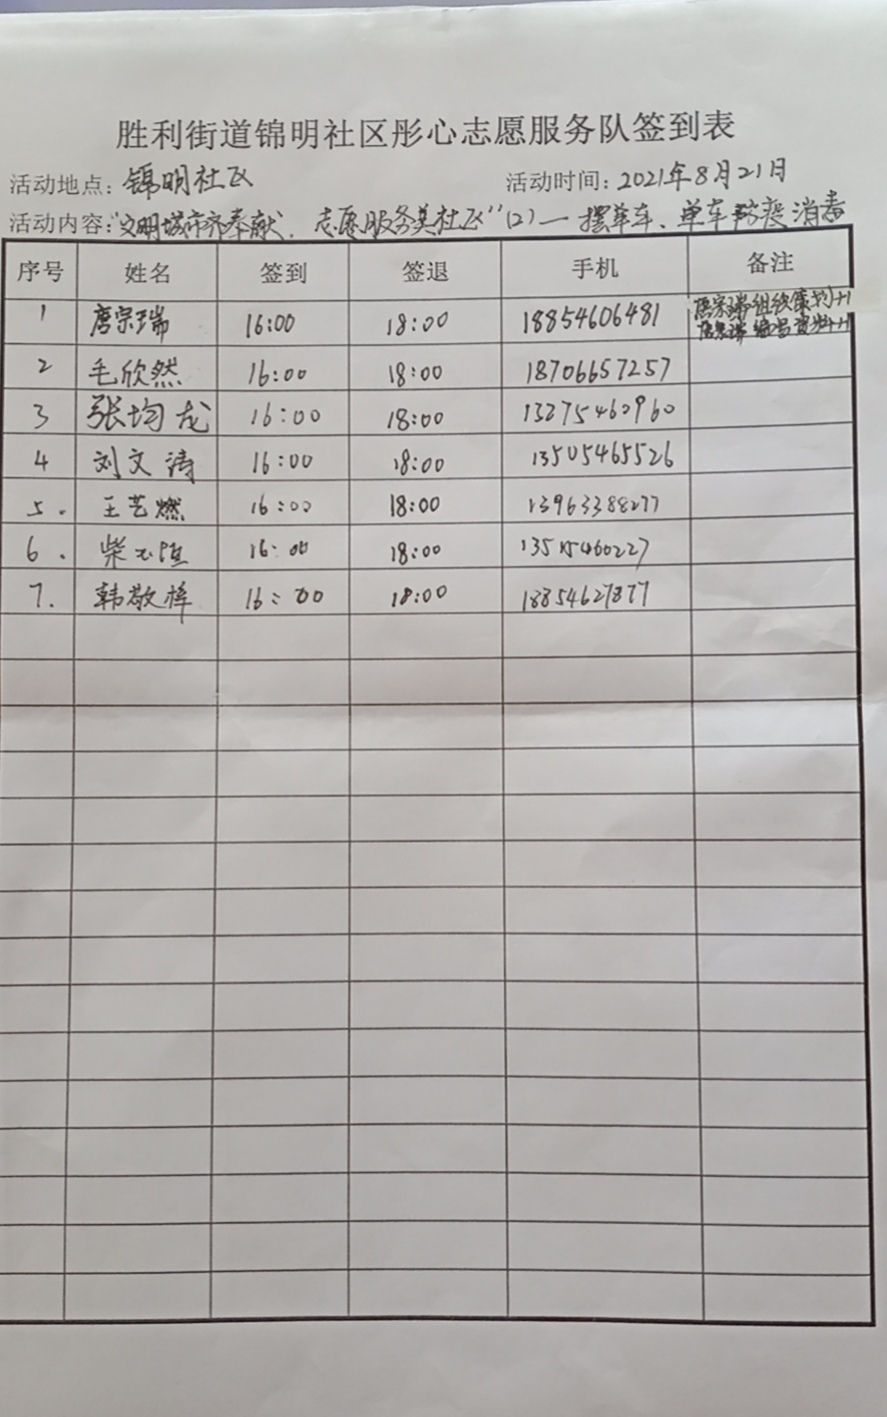 胜利街道锦明社区彤心志愿服务队签到表
活动地点：锦明社区 活动时间：2021年8月21日
活动内容："文明城市齐奉献，志愿服务美社区"(2)—摆单车、单车防疫消毒
序号 姓名 签到 签退 手机 备注
1 唐宗瑞 16:00 18:00 18854606481 唐宗瑞组织策划+1
唐宗瑞 +1
2 毛欣然 16:00 18:00 18706657257
3 张均龙 16:00 18:00 13275460960
4 刘文涛 16:00 18:00 13505465526
5. 王艺燃 16:00 18:00 13963388277
6. 柴 16:00 18:00
7. 韩敬梓 16:00 18:00 18854627877